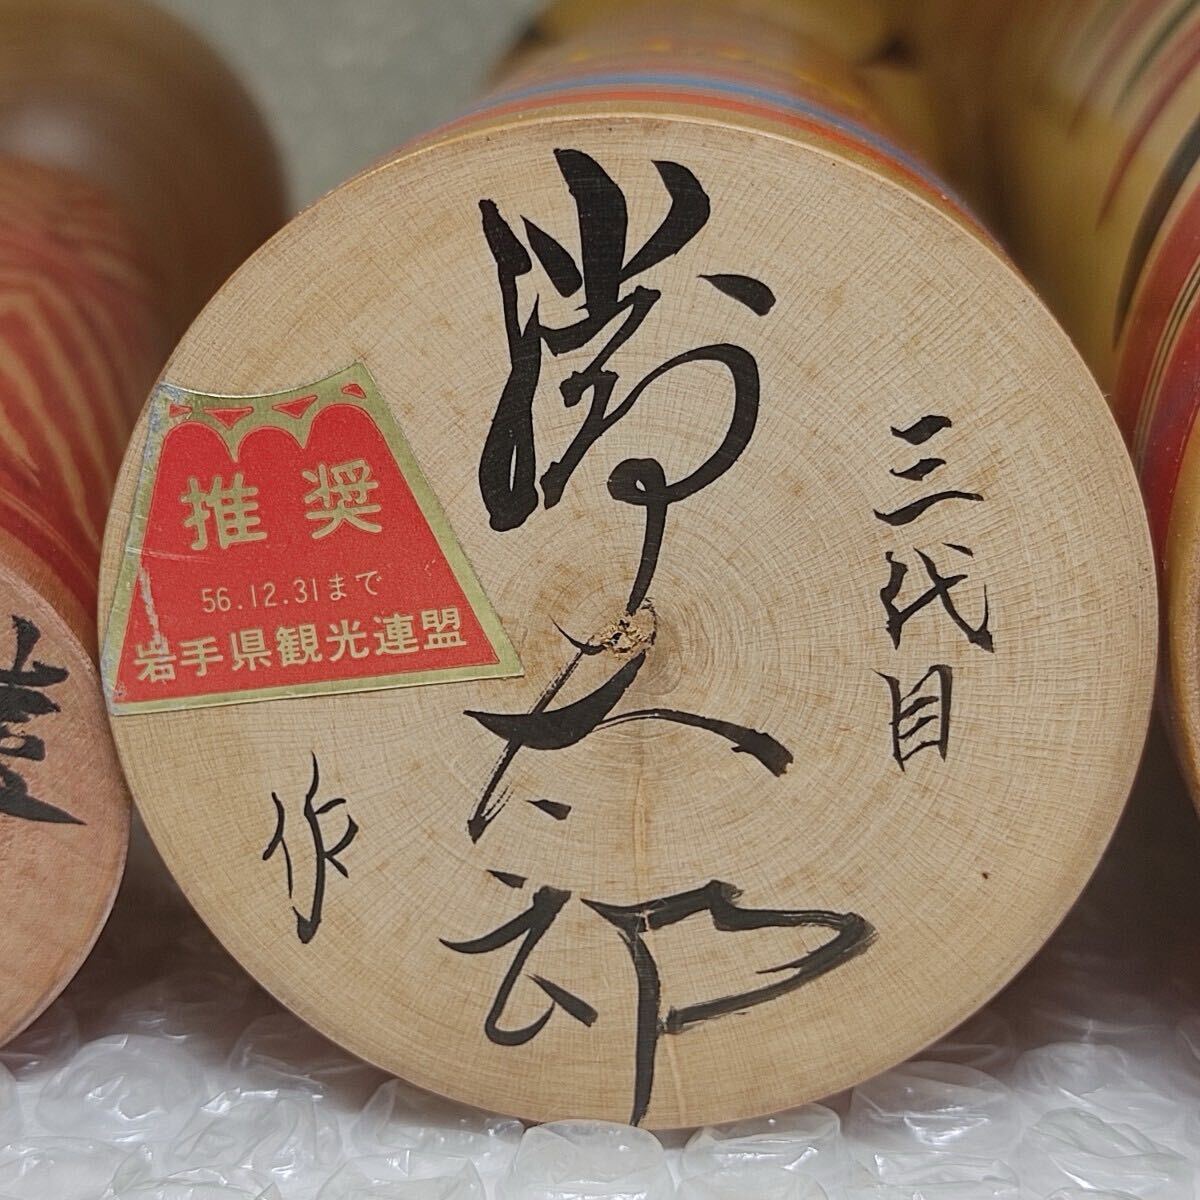 三代目
太郎
作
推奨
56.12.31まで
岩手県観光連盟